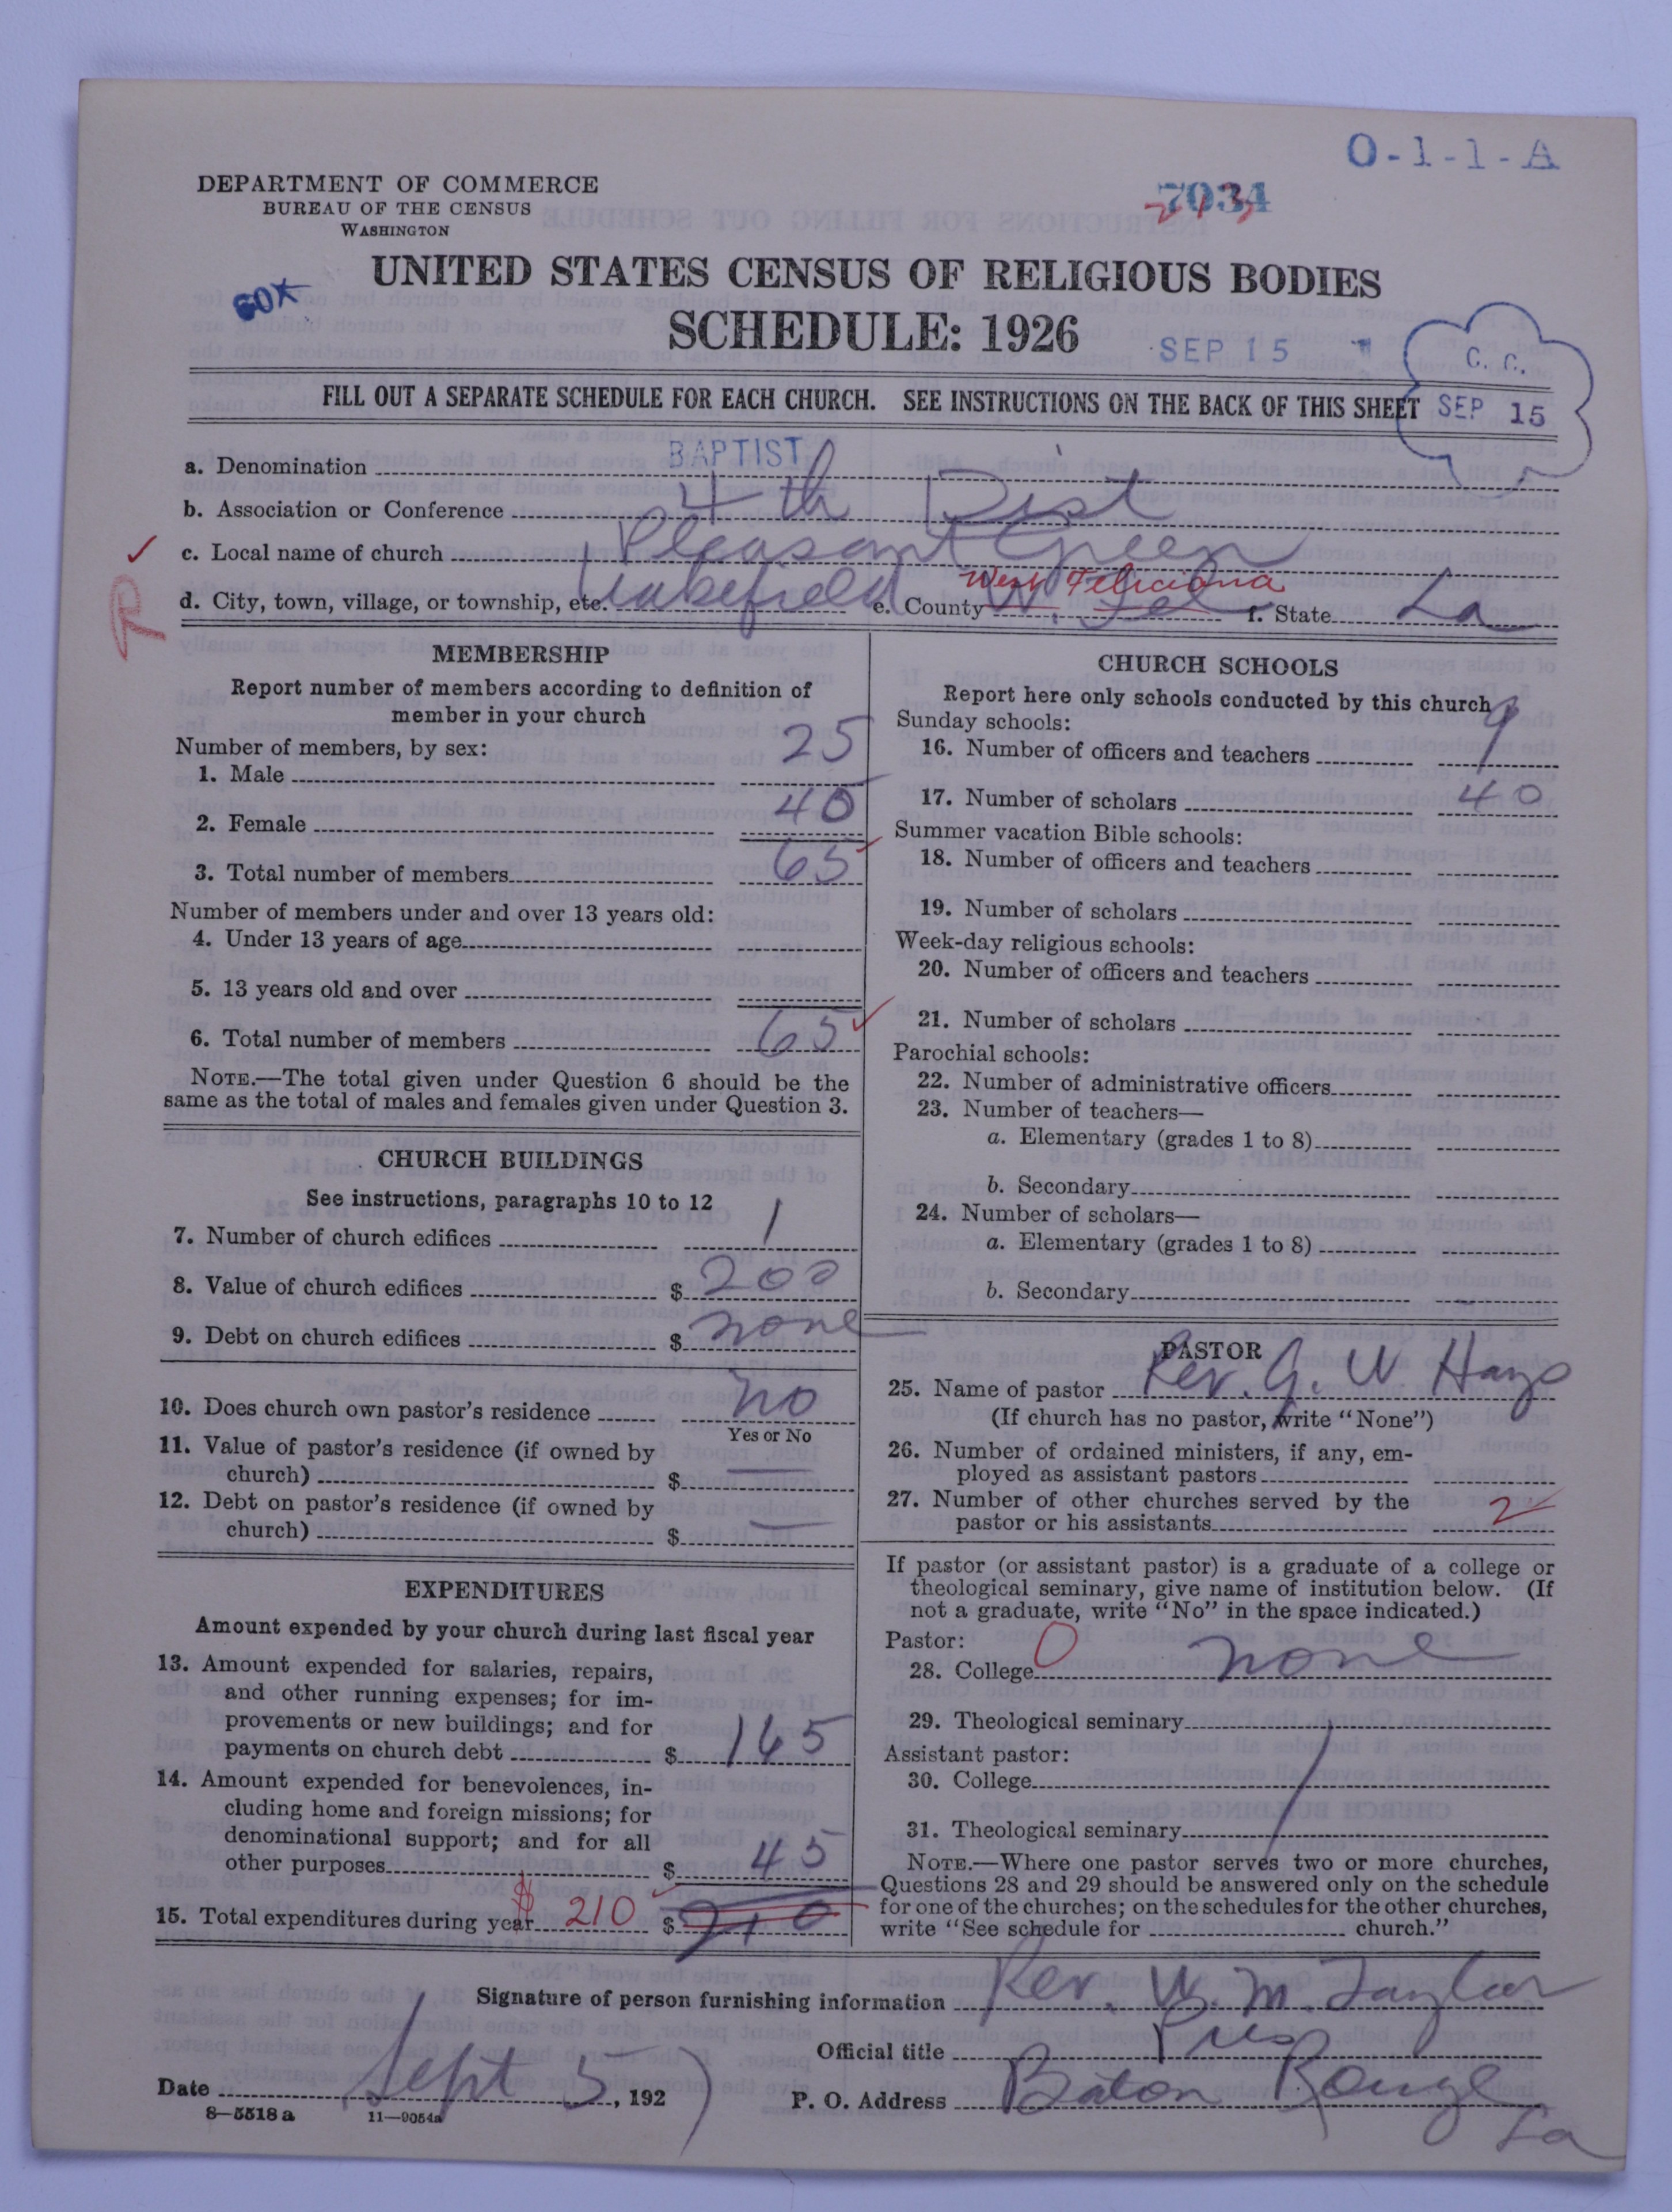 O-1-1-A
DEPARTMENT OF COMMERCE
BUREAU OF THE CENSUS
WASHINGTON
7034
UNITED STATES CENSUS OF RELIGIOUS BODIES
SCHEDULE: 1926
SEP 15
C. C.
FILL OUT A SEPARATE SCHEDULE FOR EACH CHURCH. SEE INSTRUCTIONS ON THE BACK OF THIS SHEET
SEP 15
a. Denomination BAPTIST
b. Association or Conference 4th Dist
c. Local name of church Pleasant Green
R
d. City, town, village, or township, etc. Wakefield e. County W. Fel West Feliciana f. State La
MEMBERSHIP
Report number of members according to definition of
member in your church
Number of members, by sex:
1. Male 25
2. Female 40
3. Total number of members 65
Number of members under and over 13 years old:
4. Under 13 years of age
5. 13 years old and over
6. Total number of members 65
NOTE.—The total given under Question 6 should be the
same as the total of males and females given under Question 3.
CHURCH BUILDINGS
See instructions, paragraphs 10 to 12
7. Number of church edifices 1
8. Value of church edifices $ 200
9. Debt on church edifices $ none
10. Does church own pastor's residence no
Yes or No
11. Value of pastor's residence (if owned by
church) $ —
12. Debt on pastor's residence (if owned by
church) $ —
EXPENDITURES
Amount expended by your church during last fiscal year
13. Amount expended for salaries, repairs,
and other running expenses; for im-
provements or new buildings; and for
payments on church debt $ 165
14. Amount expended for benevolences, in-
cluding home and foreign missions; for
denominational support; and for all
other purposes $ 45
15. Total expenditures during year $ 210 $ 210
CHURCH SCHOOLS
Report here only schools conducted by this church
Sunday schools:
16. Number of officers and teachers 9
17. Number of scholars 40
Summer vacation Bible schools:
18. Number of officers and teachers
19. Number of scholars
Week-day religious schools:
20. Number of officers and teachers
21. Number of scholars
Parochial schools:
22. Number of administrative officers
23. Number of teachers—
a. Elementary (grades 1 to 8)
b. Secondary
24. Number of scholars—
a. Elementary (grades 1 to 8)
b. Secondary
PASTOR
25. Name of pastor Rev. G. W Hays
(If church has no pastor, write "None")
26. Number of ordained ministers, if any, em-
ployed as assistant pastors
27. Number of other churches served by the
pastor or his assistants 2
If pastor (or assistant pastor) is a graduate of a college or
theological seminary, give name of institution below. (If
not a graduate, write "No" in the space indicated.)
Pastor:
28. College 0 none
29. Theological seminary
Assistant pastor:
30. College
31. Theological seminary
NOTE.—Where one pastor serves two or more churches,
Questions 28 and 29 should be answered only on the schedule
for one of the churches; on the schedules for the other churches,
write "See schedule for church."
Signature of person furnishing information Rev. W. M. Taylor
Official title Pres
Date Sept 5, 192 P. O. Address Baton Rouge
La
8—5518 a 11—9054a